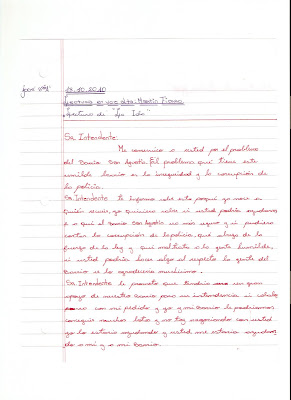 13.10.2010
Lectura en voz alta: Martín Fierro
Lectura de "La Ida"
Sr Intendente:
Me comunico a usted por el problema
del Barrio San Agustín. El problema que tiene este
humilde barrio es la inseguridad y la corrupción de
la policía.
Sr Intendente le informo sobre esto porque yo
quiero saber si usted podría ayudarnos
a que el Barrio San Agustín sea más seguro y sin
corrupción de la policía, que abusa de la
fuerza de la ley y que maltrata a la gente humilde,
si usted podría hacer algo al respecto la gente del
Barrio se lo agradecería muchísimo.
Sr Intendente le prometo que tendría un gran
apoyo de nuestro barrio para su intendencia si
con mi pedido y yo y mi Barrio le podríamos
conseguir muchos votos y no estoy negociando con usted
yo lo estaría ayudando y usted me estaría ayudando
a mi y a mi Barrio.